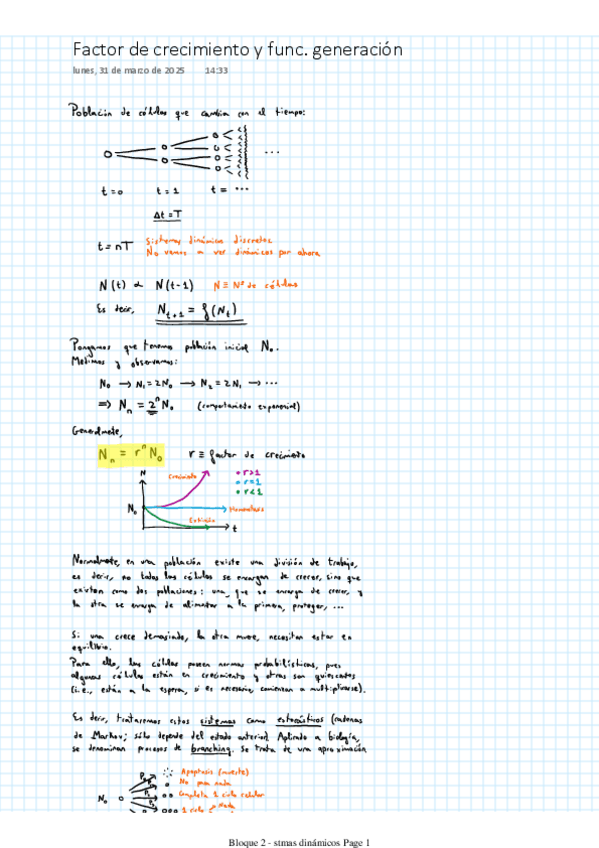 Factor de crecimiento y func. generación
lunes, 31 de marzo de 2025 14:33
Población de células que cambia con el tiempo:
t=0 t=1 t= ...
Δt=T
t=nT Sistemas dinámica discretos
No vamos a ver dinámicos por ahora
N(t) ∝ N(t-1) N ≡ Nº de células
Es decir, N_{t+1} = f(N_t)
Pongamos que tenemos población inicial N₀.
Medimos y observamos:
N₀ → N₁=2N₀ → N₂=2N₁ → ...
=> N_n = 2ⁿN₀ (comportamiento exponencial)
Generalmente,
N_n = rⁿN₀ r ≡ factor de crecimiento
N Crecimiento • r>1
• r=1
• r<1
N₀ Homeostasis
Extinción
t
Normalmente, en una población existe una división de trabajo,
es decir, no todas las células se encargan de crecer, sino que
existen como dos poblaciones: una, que se encarga de crecer, y
la otra se encarga de alimentar a la primera, proteger, ...
Si una crece demasiado, la otra muere, necesitan estar en
equilibrio.
Para ello, las células poseen normas probabilísticas, pues
algunas células están en crecimiento y otras son quiescentes
(i.e., están a la espera, si es necesario, comienzan a multiplicarse).
Es decir, trataremos estos sistemas como estocásticos (cadenas
de Markov; sólo depende del estado anterior). Aplicado a biología,
se denominan procesos de branching. Se trata de una aproximación
Apoptosis (muerte)
No pasa nada
N₀ Completa 1 ciclo celular
1 ciclo + Nada
Bloque 2 - stmas dinámicos Page 1